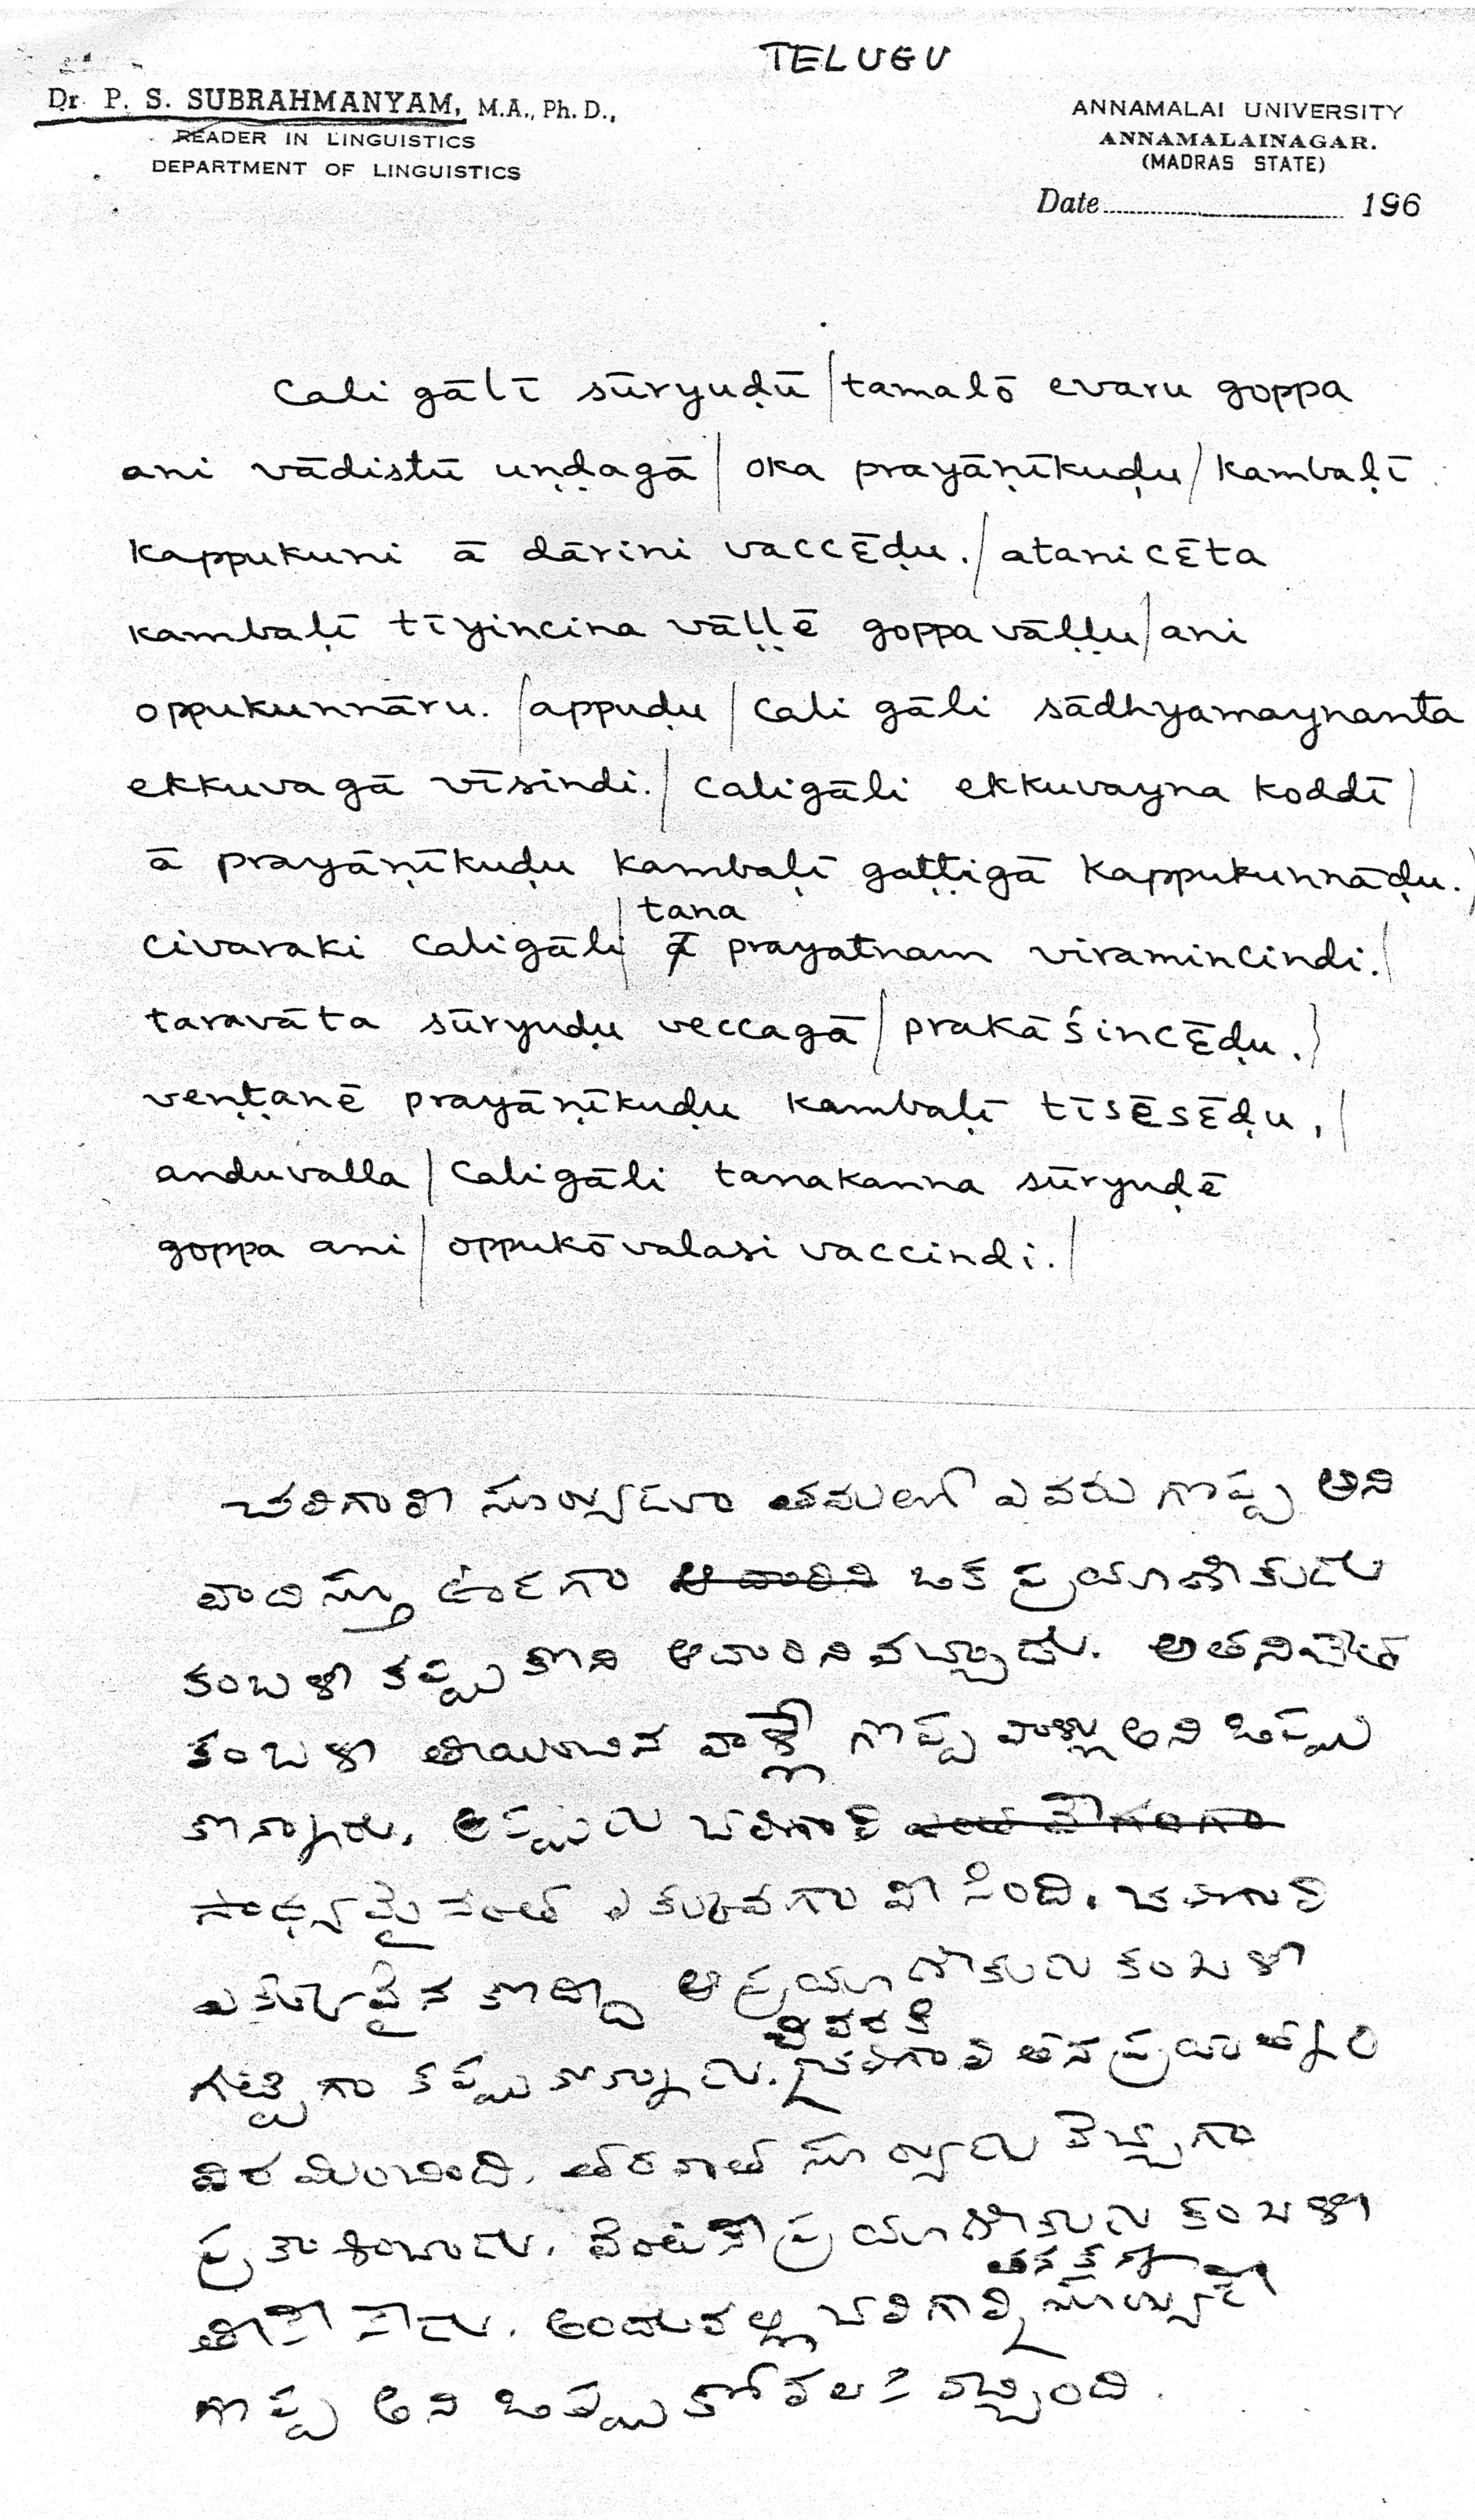 TELUGU
Dr. P. S. SUBRAHMANYAM, M.A., Ph. D.,
READER IN LINGUISTICS
DEPARTMENT OF LINGUISTICS
ANNAMALAI UNIVERSITY
ANNAMALAINAGAR.
(MADRAS STATE)
Date 196
Cali gālī sūryuḍū / tamalō evaru goppa
ani vādistū uṇḍagā / oka prayāṇīkuḍu / kambaḷī
kappukuni ā dārini vaccɛ̄ḍu. / atanicēta
kambaḷī tīyincina vāḷḷē goppavāḷḷu / ani
oppukunnāru. / appuḍu / cali gāli sādhyamaynanta
ekkuvagā vīsindi. / caligāli ekkuvayna koddī /
ā prayāṇīkuḍu kambaḷī gaṭṭigā kappukunnāḍu. /
civaraki caligāli / tana prayatnam viramincindi. /
taravāta sūryuḍu veccagā / prakāśincɛ̄ḍu. /
veṇṭanē prayāṇīkuḍu kambaḷī tīsēsɛ̄ḍu, /
anduvalla / caligāli tanakanna sūryuḍē
goppa ani / oppukōvalasi vaccindi. /
చలిగాలీ సూర్యుడూ తమలో ఎవరు గొప్ప అని
వాదిస్తూ ఉండగా ఒక ప్రయాణీకుడు
కంబళీ కప్పుకొని ఆదారిని వచ్చాడు. అతనిచేత
కంబళీ తీయించిన వాళ్లే గొప్ప వాళ్లు అని ఒప్పు
కొన్నారు. అప్పుడు చలిగాలి
సాధ్యమైనంత ఎక్కువగా వీసింది. చలిగాలి
ఎక్కువైన కొద్దీ ఆ ప్రయాణీకుడు కంబళీ
గట్టిగా కప్పుకొన్నాడు. చివరకి చలిగాలి తన ప్రయత్నం
విరమించింది. తరవాత సూర్యుడు వెచ్చగా
ప్రకాశించాడు. వెంటనే ప్రయాణీకుడు కంబళీ
తీసేసాడు. అందువల్ల చలిగాలి తనకన్న సూర్యుడే
గొప్ప అని ఒప్పుకోవలసి వచ్చింది.